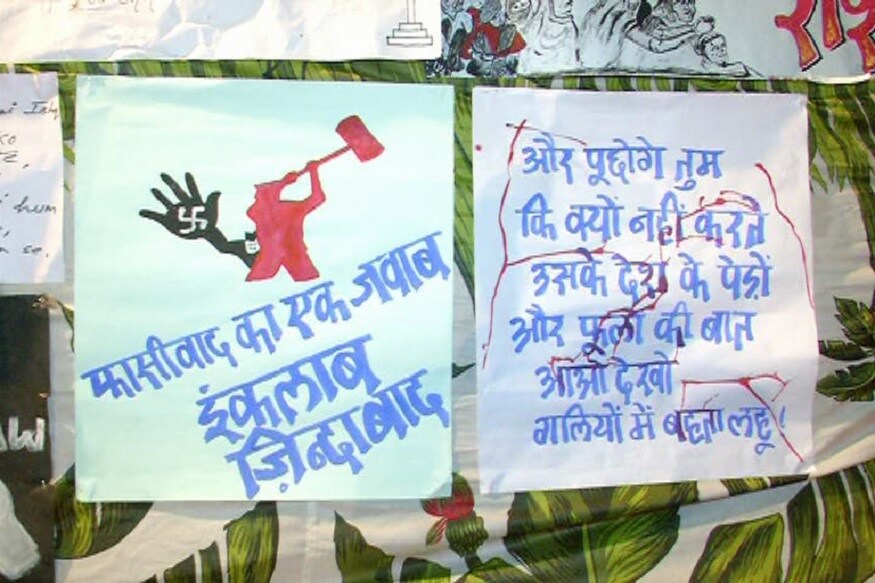 फासीवाद का एक जवाब
इंकलाब
ज़िन्दाबाद
और पूछोगे तुम
कि क्यों नहीं करते
उसके देश के पेड़ों
और फूलों की बात
आओ देखो
गलियों में बहता लहू!